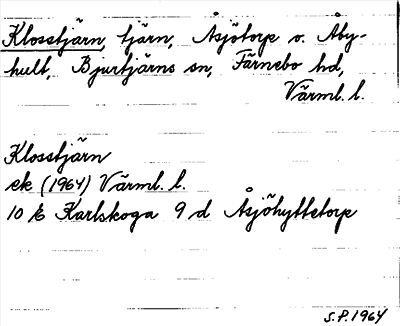 Klosstjärn, tjärn, Åsjötorp o. Åby-
hult, Bjurtjärns sn, Färnebo hd,
Värml. l.
Klosstjärn
ek (1964) Värml. l.
10 E Karlskoga 9 d Åsjöhyttetorp
S.P. 1964